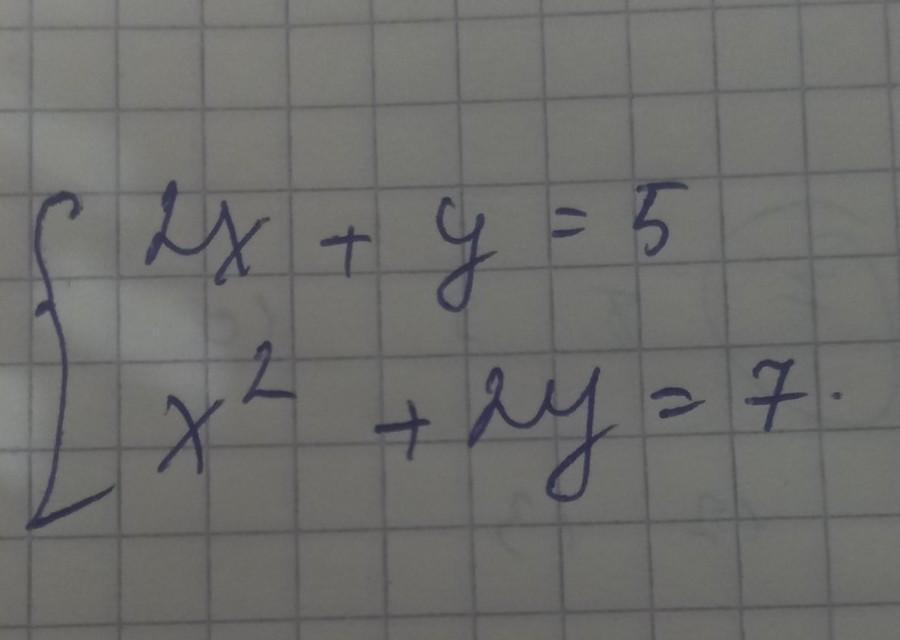 2x + y = 5
x² + 2y = 7.